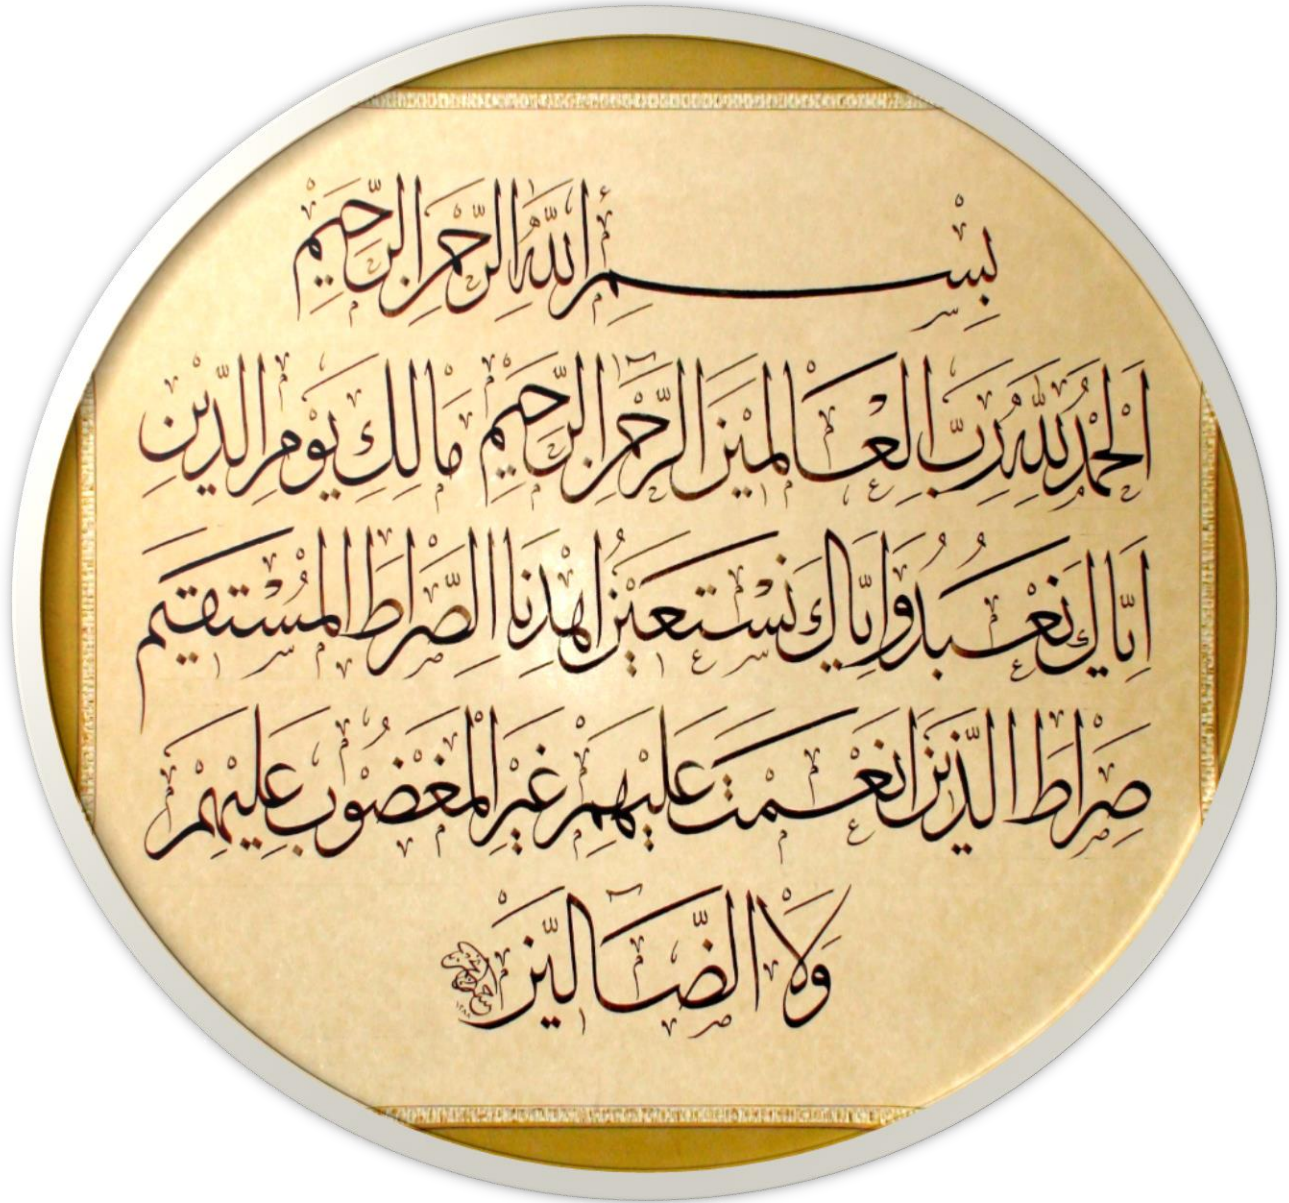 بِسْمِ اللّٰهِ الرَّحْمٰنِ الرَّحِيْمِ
اَلْحَمْدُ لِلّٰهِ رَبِّ الْعَالَمِيْنَ الرَّحْمٰنِ الرَّحِيْمِ مَالِكِ يَوْمِ الدِّيْنِ
اِيَّاكَ نَعْبُدُ وَاِيَّاكَ نَسْتَعِيْنُ اِهْدِنَا الصِّرَاطَ الْمُسْتَقِيْمَ
صِرَاطَ الَّذِيْنَ اَنْعَمْتَ عَلَيْهِمْ غَيْرِ الْمَغْضُوْبِ عَلَيْهِمْ
وَلَا الضَّآلِّيْنَ